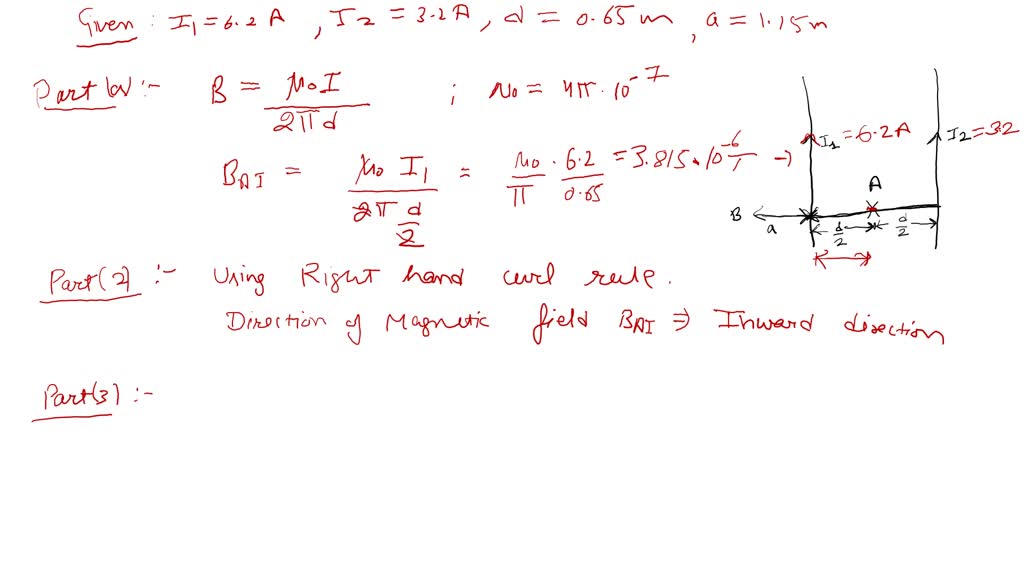 Given : I1 = 6.2 A , I2 = 3.2 A , d = 0.65 m , a = 1.15 m
Part (a) :- B = μ0 I / 2πd ; μ0 = 4π · 10^-7
BA1 = μ0 I1 / 2π d/2 = μ0/π · 6.2/0.65 = 3.815 × 10^-6 T →
I1 = 6.2 A
I2 = 3.2
A
B
a
d/2
d/2
Part (2) :- Using Right hand curl rule.
Direction of Magnetic field BA1 ⇒ Inward direction
Part (3) :-